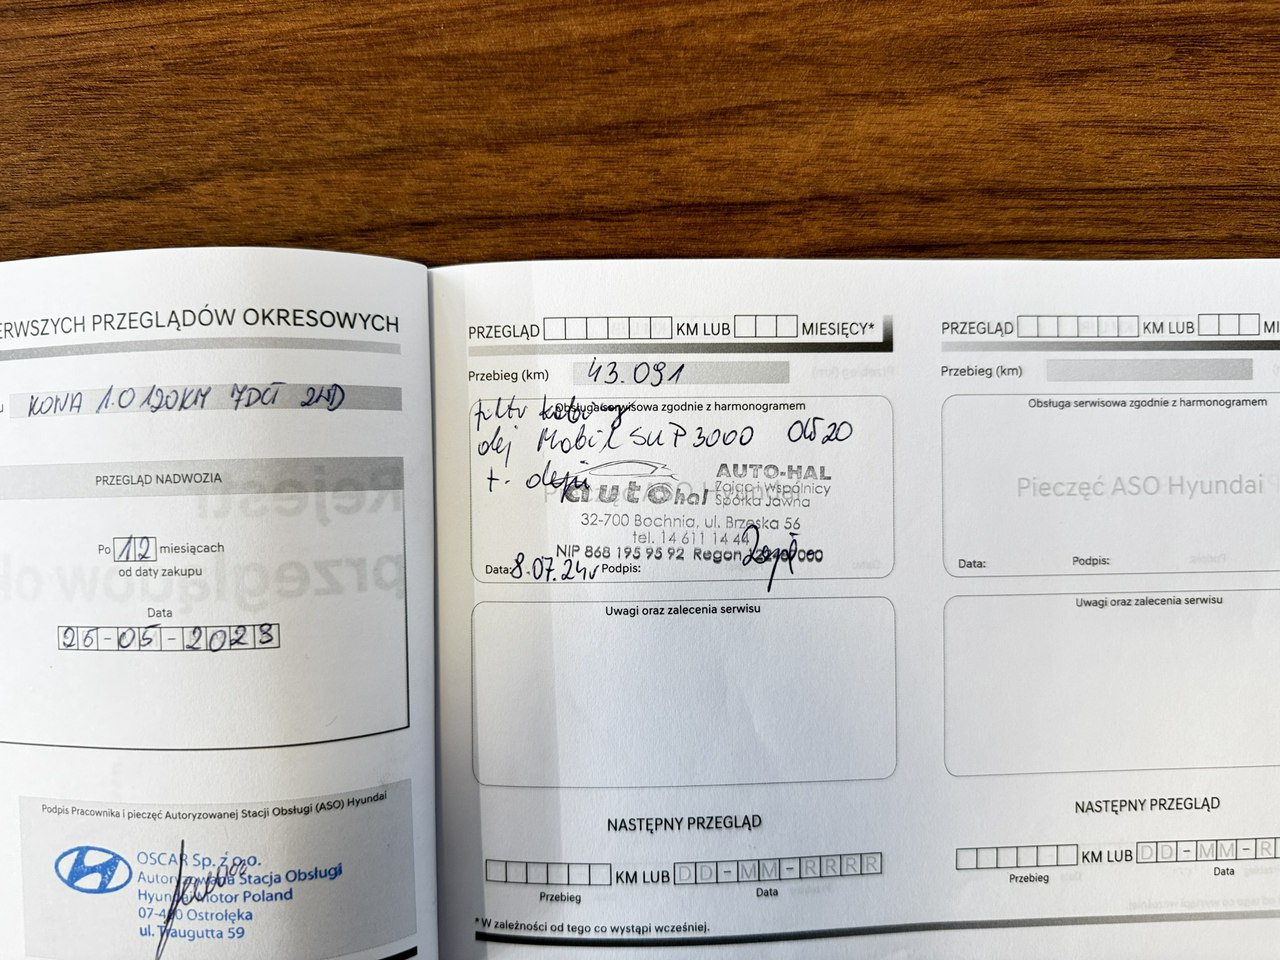 ERWSZYCH PRZEGLĄDÓW OKRESOWYCH
KONA 1.0 120KM 7DCT 2WD
PRZEGLĄD NADWOZIA
Po 12 miesiącach
od daty zakupu
Data
26-05-2023
Podpis Pracownika i pieczęć Autoryzowanej Stacji Obsługi (ASO) Hyundai
OSCAR Sp. z o.o.
Autoryzowana Stacja Obsługi
Hyundai Motor Poland
07-400 Ostrołęka
ul. Traugutta 59
PRZEGLĄD KM LUB MIESIĘCY*
Przebieg (km) 43.091
Obsługa serwisowa zgodnie z harmonogramem
filtr kabiny
olej Mobil SUP 3000 0W20
+ f. oleju
Pieczęć ASO Hyundai
auto hal
AUTO-HAL
Zając i Wspólnicy
Spółka Jawna
32-700 Bochnia, ul. Brzeska 56
tel. 14 611 14 44
NIP 868 195 95 92 Regon
Data: 8.07.24r Podpis:
Uwagi oraz zalecenia serwisu
NASTĘPNY PRZEGLĄD
KM LUB DD-MM-RRRR
Przebieg Data
*W zależności od tego co wystąpi wcześniej.
PRZEGLĄD KM LUB MI
Przebieg (km)
Obsługa serwisowa zgodnie z harmonogramem
Pieczęć ASO Hyundai
Data: Podpis:
Uwagi oraz zalecenia serwisu
NASTĘPNY PRZEGLĄD
KM LUB DD-MM-R
Przebieg Data